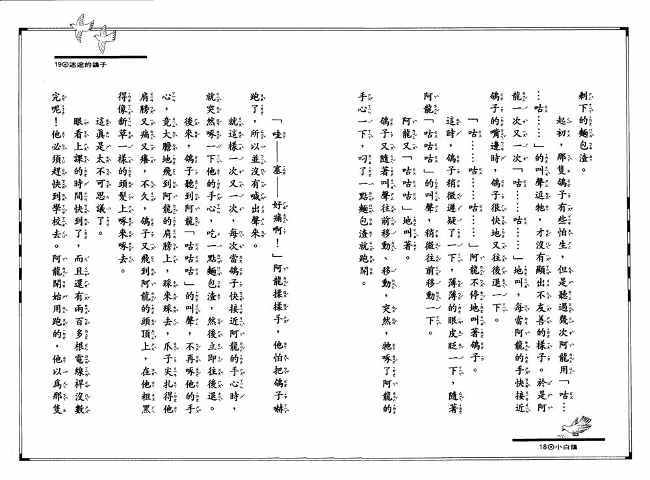 剩下的麵包渣。
起初，那隻鴿子有些怕生，但是聽過幾次阿龍用「咕…
…咕……」的叫聲逗牠，才沒有顯出不友善的樣子。於是阿
龍一次又一次「咕……咕……」地叫，每當阿龍的手快接近
鴿子的嘴邊時，鴿子很快地又往後退一下。
「咕……咕……咕……」阿龍不停地叫著鴿子。
這時，鴿子稍微遲疑了一下，薄薄的眼皮眨一下，隨著
阿龍「咕咕咕」的叫聲，稍微往前移動一下。
阿龍又「咕咕咕」地叫著。
鴿子又隨著叫聲往前移動、移動，突然，牠啄了阿龍的
手心一下，叼了一點麵包渣就跑開。
18⊙小白鴿
19⊙迷途的鴿子
「哇——塞——好痛啊！」阿龍揉揉手，他怕把鴿子嚇
跑了，所以並沒有喊出聲來。
就這樣一次又一次，每次當鴿子快接近阿龍的手心時，
就突然啄一下他的手心，吃一點麵包渣，然後立即往後退。
後來，鴿子聽到阿龍「咕咕咕」的叫聲，不再啄他的手
心，竟大膽地飛到阿龍的肩膀上，踩來踩去，爪子尖扎得他
肩膀又痛又癢，不久，鴿子又飛到阿龍的頭頂上，在他粗黑
得像新草一樣的頭髮上啄來啄去。
這真是太不可思議了。
眼看上課的時間快到了，而且還有兩百多根電線桿沒數
完呢！他必須趕快到學校去。阿龍開始用跑的，他以為那隻